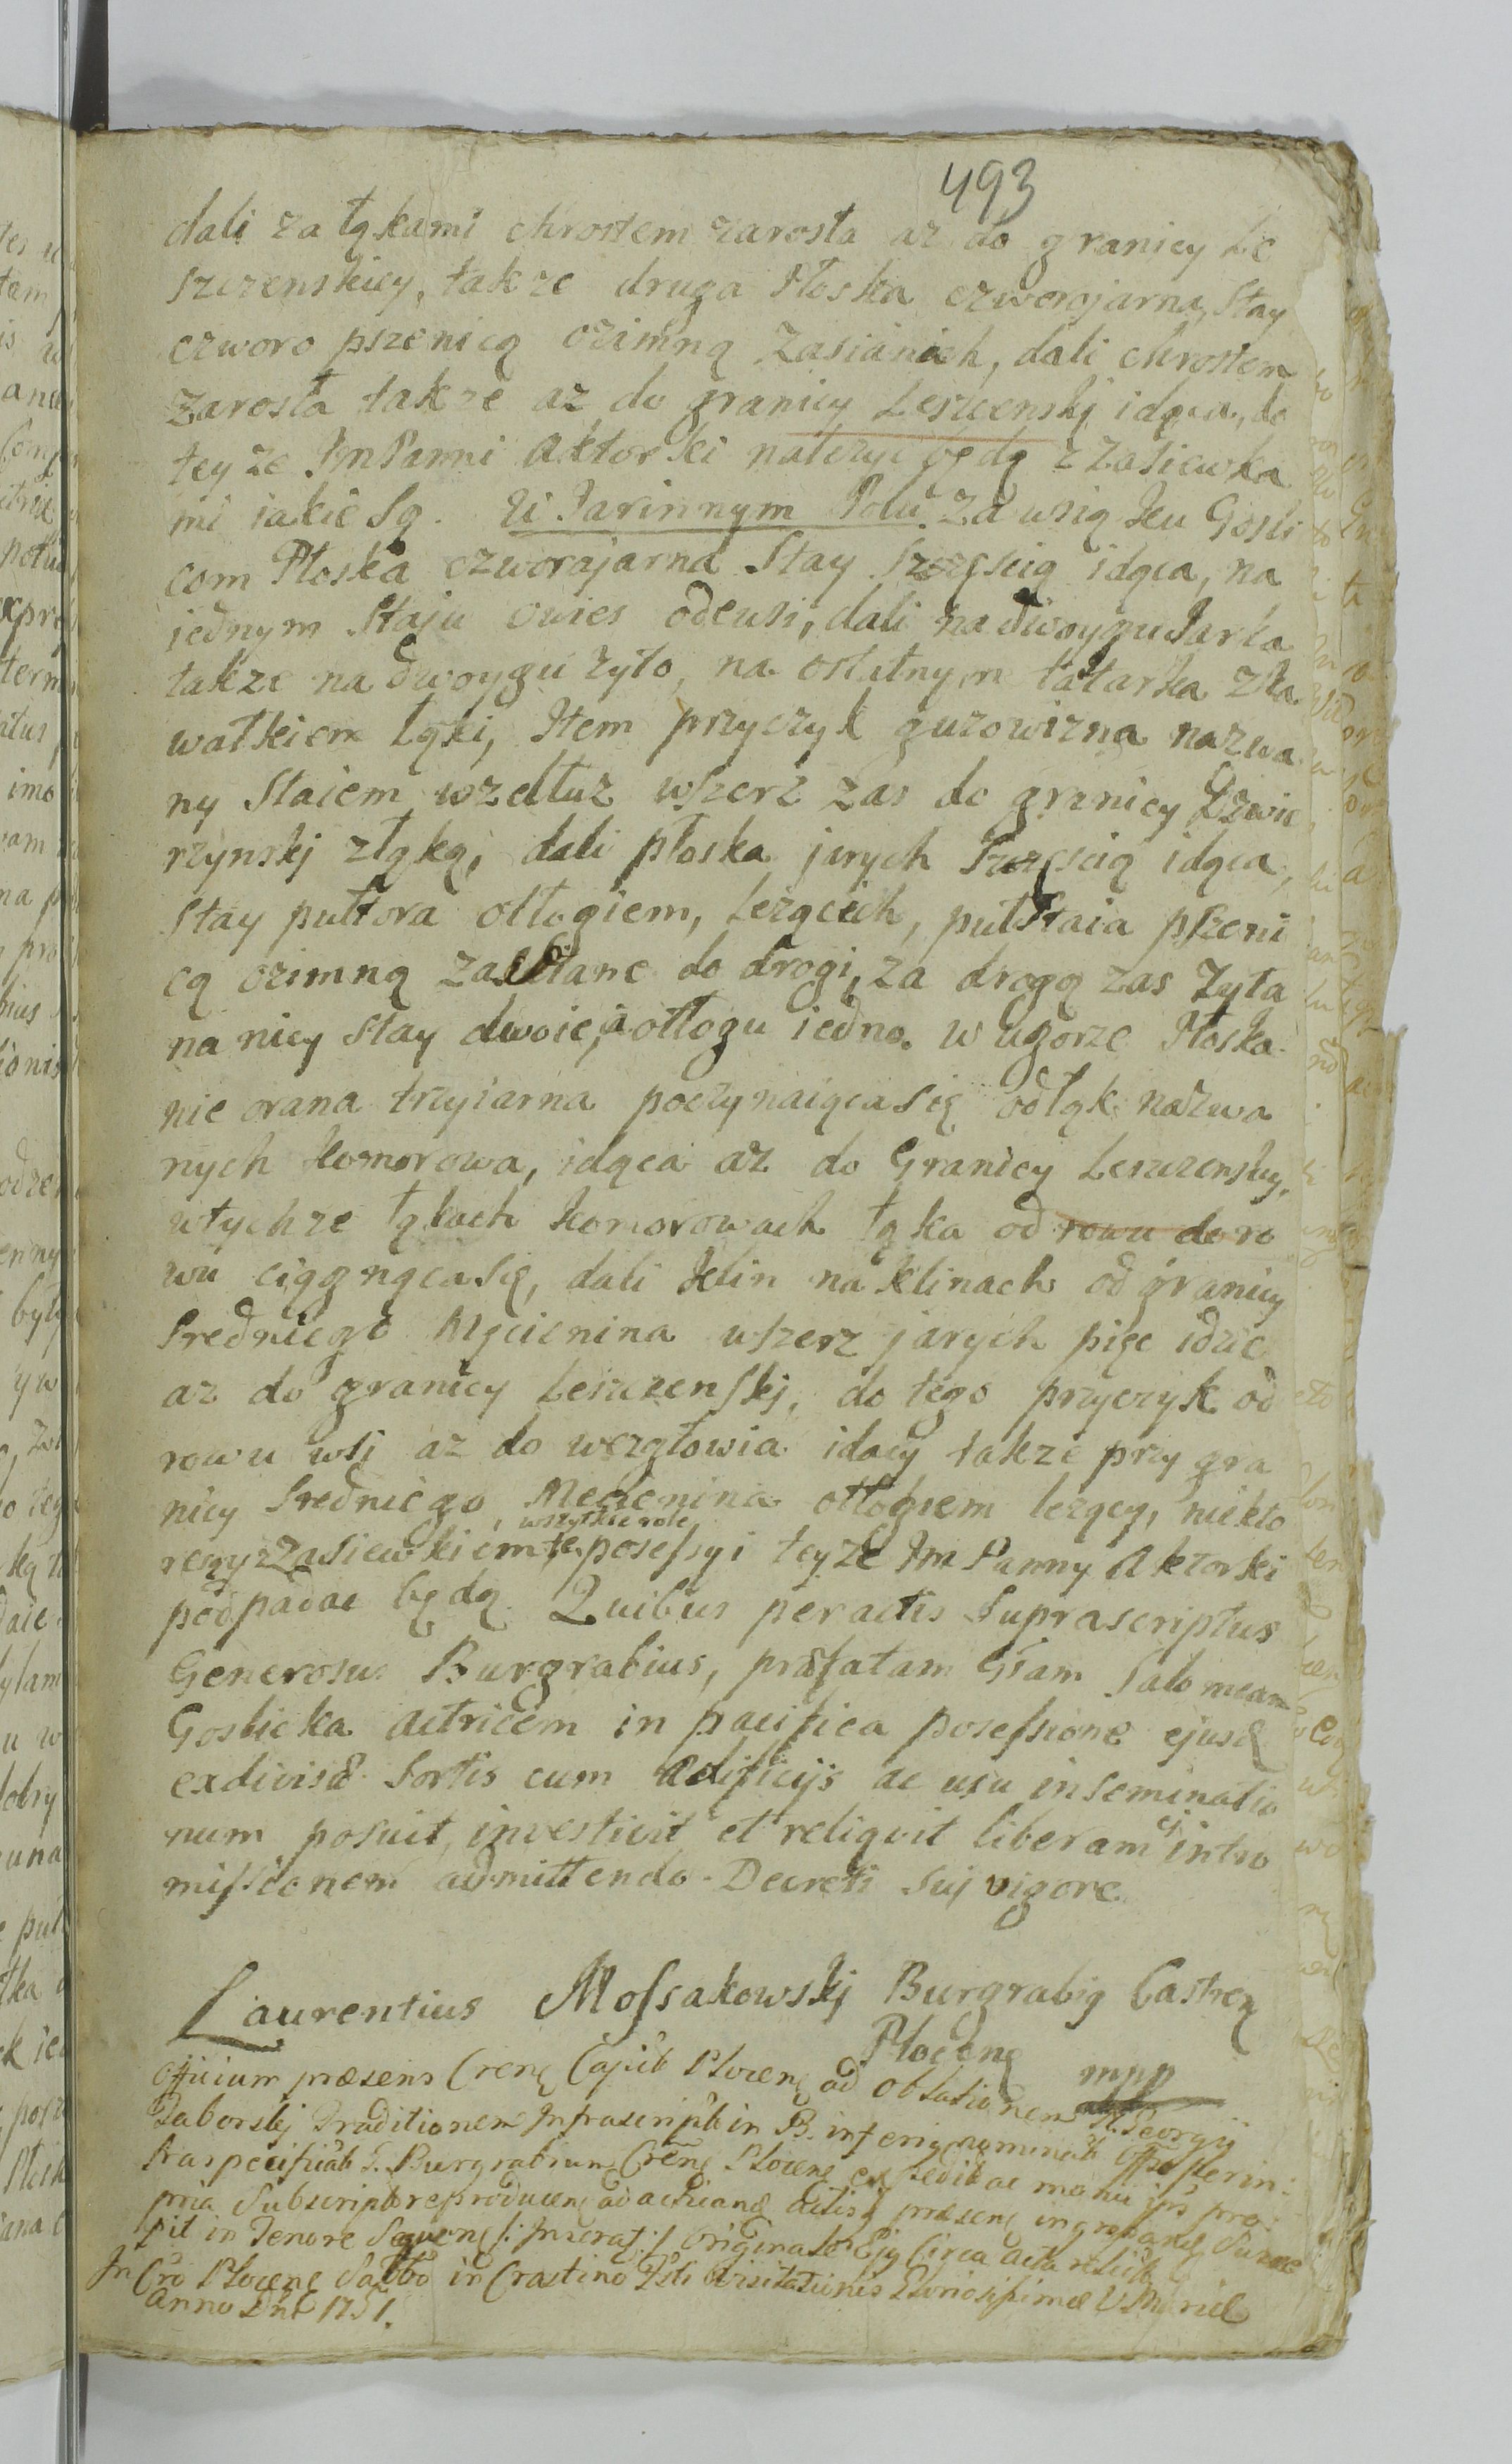 493
dali za łąkami chrostem zarosta az do granicy Le
szczenskiey, takze druga Płoska czworojarna, Stay
czworo pszenicą ozimną zasianich, dali chrostem
zarosta takze az do granicy Leszczenskj idąca, do
teyze Jm Panni Aktorki nalezyc będą z zasiewka
mi iakie Są. W Jarinnym Polu za wsią ku Gosli
com Płoska czworajarna Stay szescią idąca, na
iednym Staju owies odewsi, dali na dwoygu Jarka
takze na dwoygu zyto, na ostatnym tatarka zka
wałkiem Łąki, Item przyczyk guzowizną nazwa
ny Staiem wzdłuz wszerz zas do granicy Dzwie
rzynskj złąką, dali płoska jarych szescią idąca,
Stay pułtora odłogiem, Lezących, puł Staia pszeni
cą ozimną zasiane do drogi, za drogą zas Zyta
na niey Stay dwoie, a odłogu iedno. w Ugorze Płoska
nie orana trzyiarna poczynaiąca Się od łąk nazwa
nych Komorowa, idąca az do Granicy Leszczenskiy,
wtychze łąkach Komorowach łąka od rowu do ro
wu ciągnącasię, dali Klin na Klinach od granicy
Sredniego Mącienina wszerz jarych pięc idzie
az do granicy Leszczenskj, do tego przyczyk od
rowu wsi az do wezgłowia idący takze przy gra
nicy Sredniego Mecienina odłogiem lezący, niekto
wszytkie role
re zyzzasiewkiem te posessyi teyze Jm Panny Aktorki
podpadac będą. Quibus peractis Suprascriptus
Generosus Burgrabius, præfatam Gsam Salomeam
Goslicka actricem in pacifica posessione ejusd
exdivisæ Sortis cum ædificijs ac usu inseminatio
num posuit, investivit et reliqvit liberam ei intro
missionem admittendo. Decreti sui vigore.
Laurentius Mossakowskj Burgrabig Castren
Płoceng mpp
Officium præsens Crenç Capit Plocenç ad Oblationem G. Georgij
Zaborskj Traditionem Infrascript in B. inferig nominat Offo perin:
fraspecificat G. Burgrabium Crenç Plocenç expedit ac manu ips pro:
pria Subscript reproducenç ad acticand Actisq præsenç ingrosand Susce
pit in Tenore Sequenç /: Inserat :/ Originale Ejg Circa Acta relict
In Cro Plocenç Sabbo in Crastino Fsti Visitationis Gloriosissimæ V Mariæ
Anno Dni 1751.